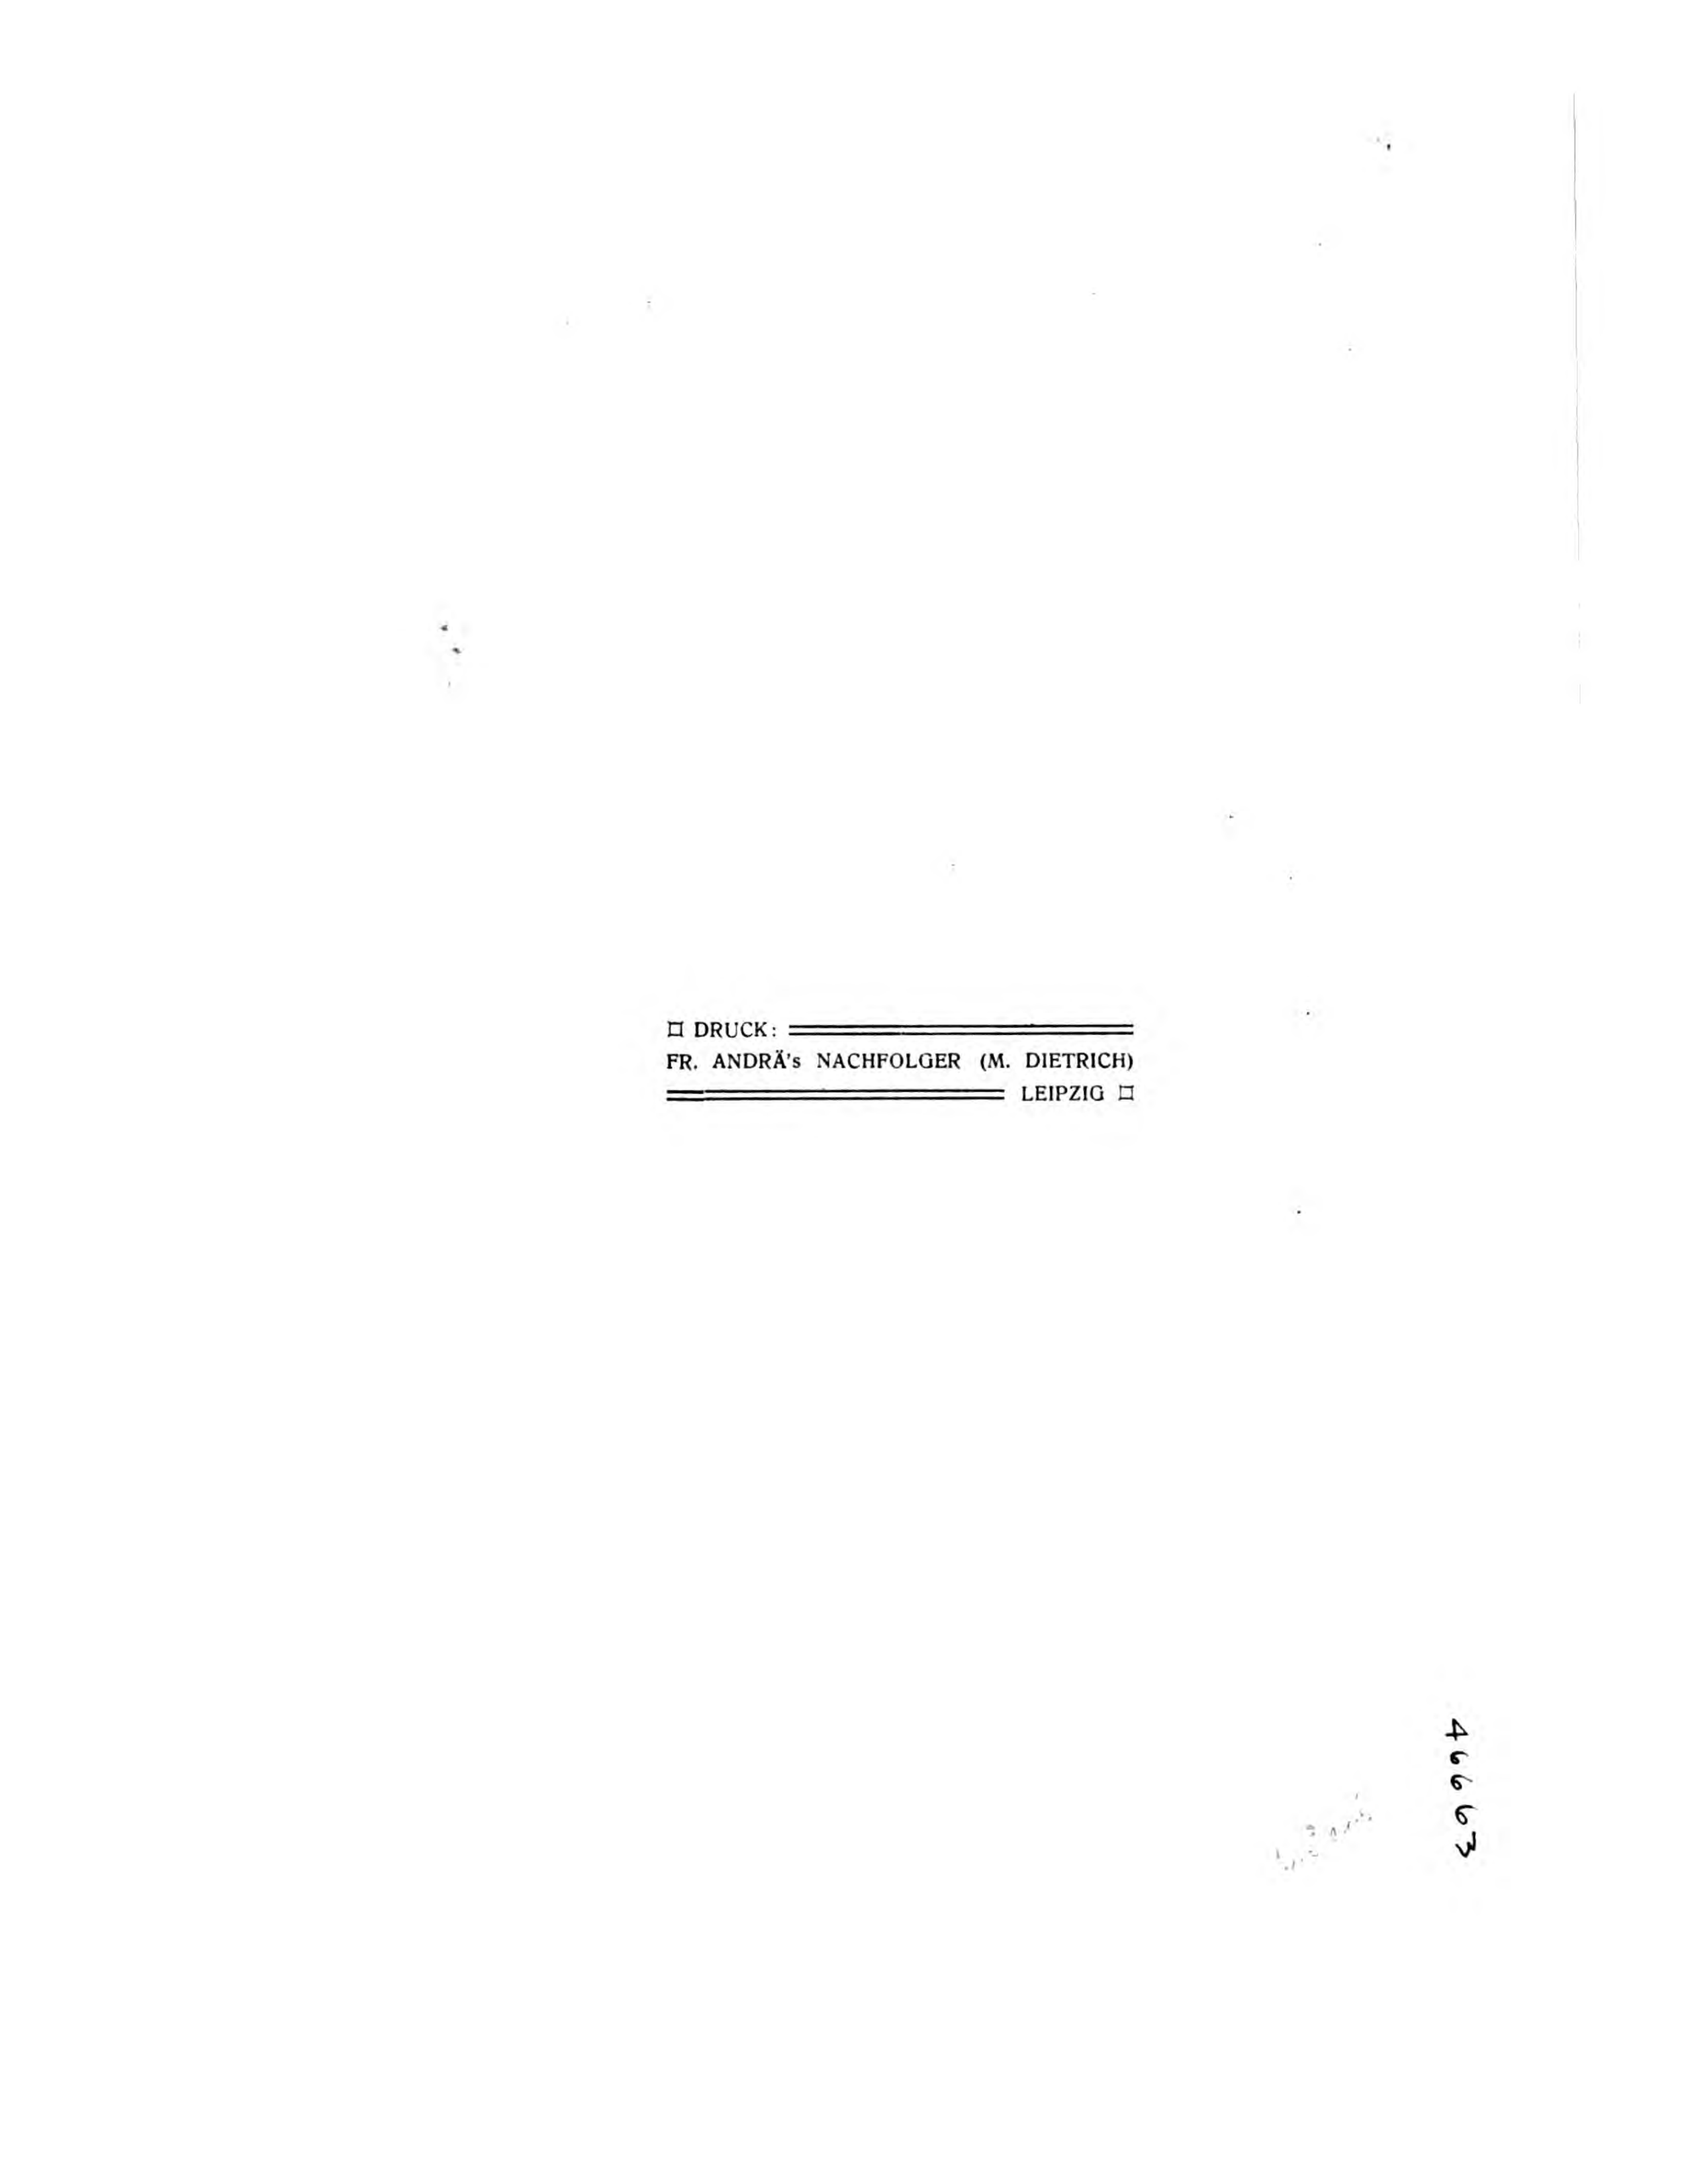 DRUCK:
FR. ANDRÄ's NACHFOLGER (M. DIETRICH)
LEIPZIG
46663